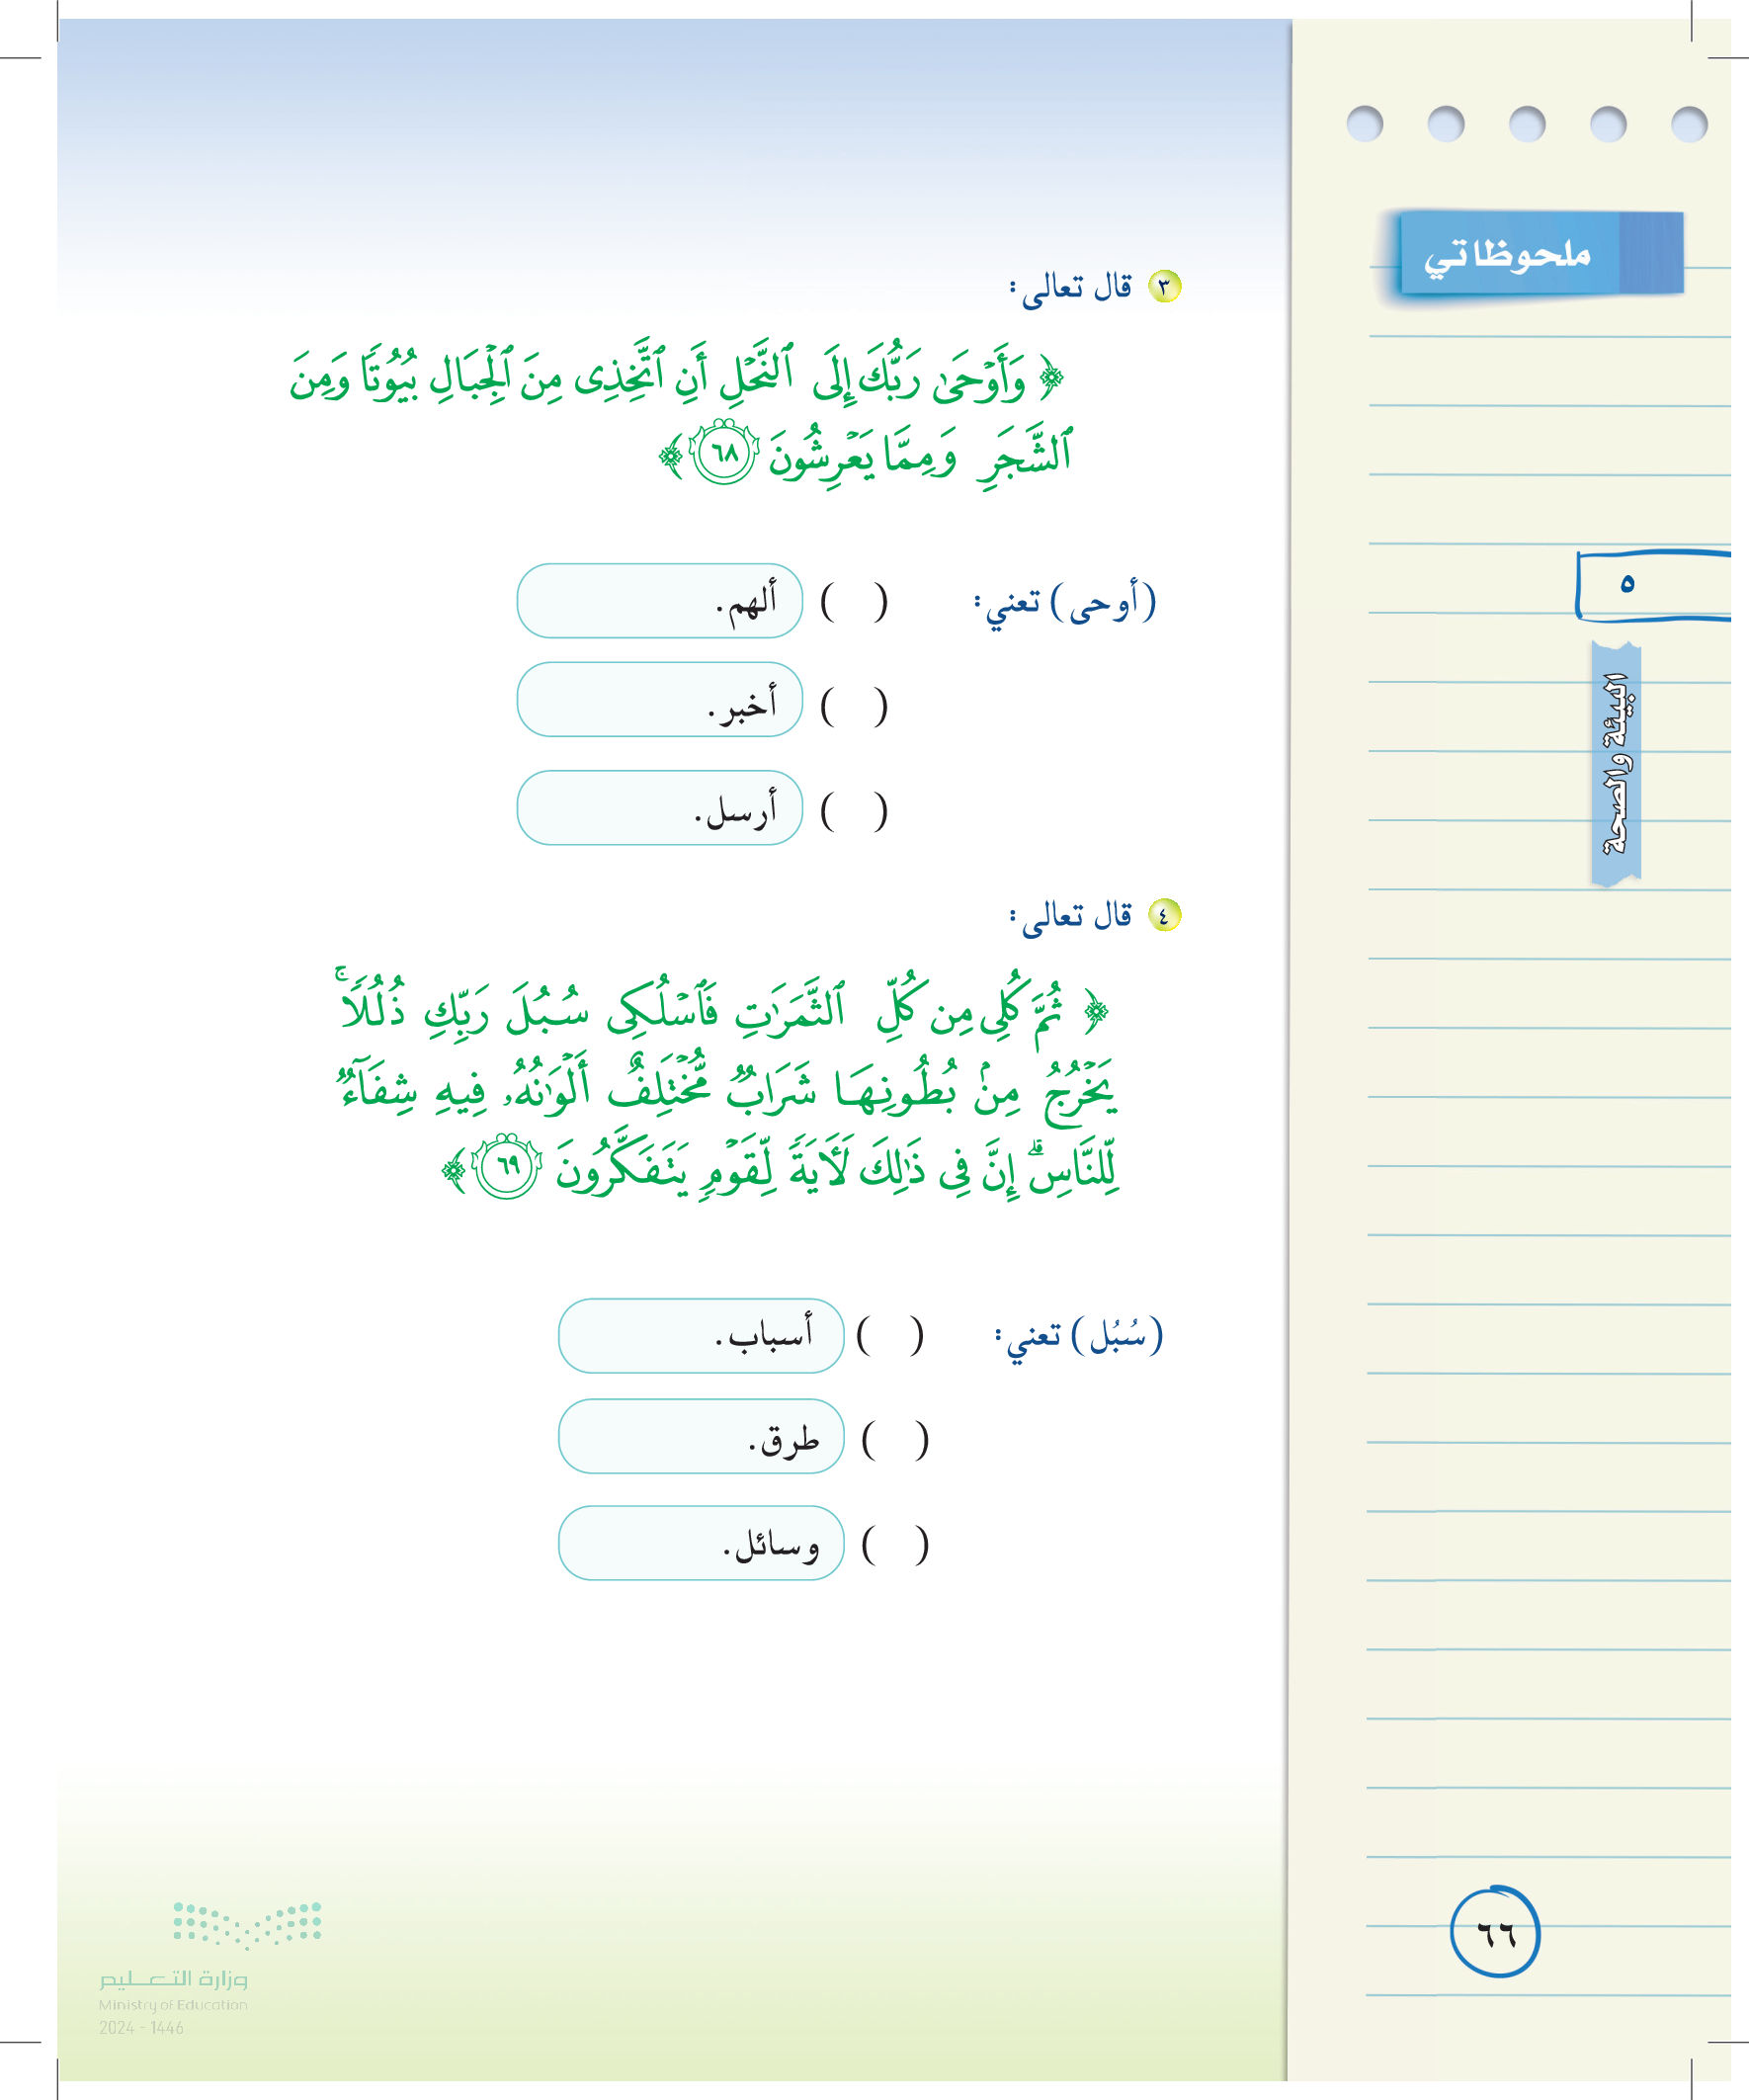 ملحوظاتي
٥
البيئة والصحة
٣ قال تعالى:
﴿ وَأَوْحَىٰ رَبُّكَ إِلَى ٱلنَّحْلِ أَنِ ٱتَّخِذِى مِنَ ٱلْجِبَالِ بُيُوتًا وَمِنَ
ٱلشَّجَرِ وَمِمَّا يَعْرِشُونَ ٦٨ ﴾
(أوحى) تعني: ( ) ألهم.
( ) أخبر.
( ) أرسل.
٤ قال تعالى:
﴿ ثُمَّ كُلِى مِن كُلِّ ٱلثَّمَرَٰتِ فَٱسْلُكِى سُبُلَ رَبِّكِ ذُلُلًا ۚ
يَخْرُجُ مِنۢ بُطُونِهَا شَرَابٌ مُّخْتَلِفٌ أَلْوَٰنُهُۥ فِيهِ شِفَآءٌ
لِّلنَّاسِ ۗ إِنَّ فِى ذَٰلِكَ لَـَٔايَةً لِّقَوْمٍ يَتَفَكَّرُونَ ٦٩ ﴾
(سُبُل) تعني: ( ) أسباب.
( ) طرق.
( ) وسائل.
٦٦
وزارة التعـليم
Ministry of Education
2024 - 1446